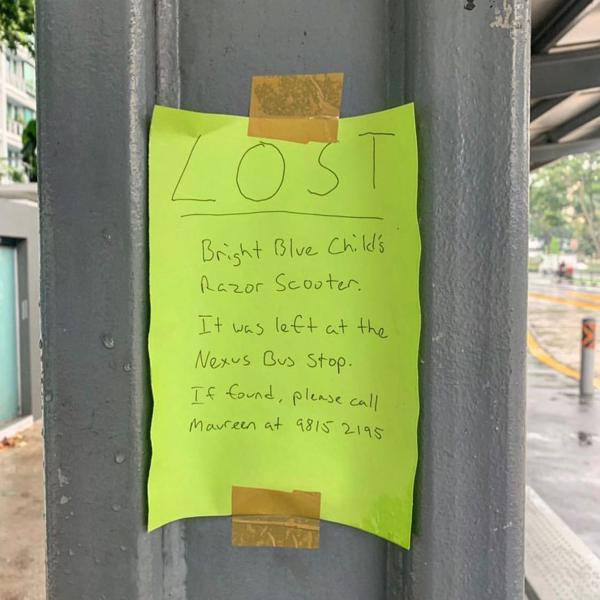 LOST
Bright Blue Child's
Razor Scooter.
It was left at the
Nexus Bus Stop.
If found, please call
Maureen at 9815 2195